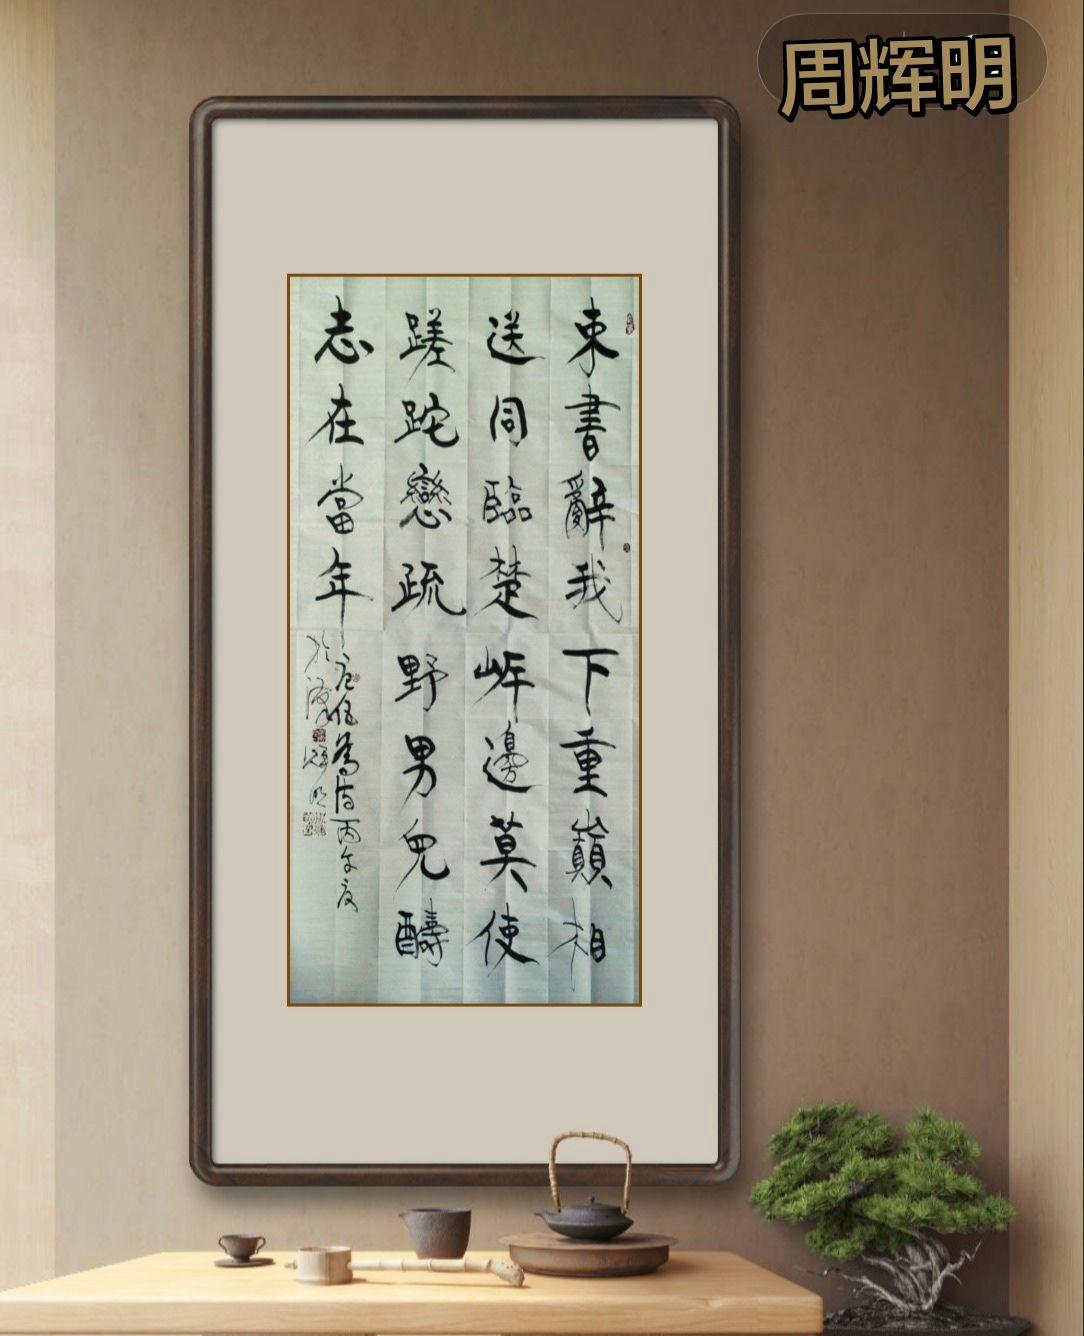 周辉明
束書辭我下重巔相
送同臨楚岸邊莫使
蹉跎戀疏野男兒醻
志在當年
丙午
輝明